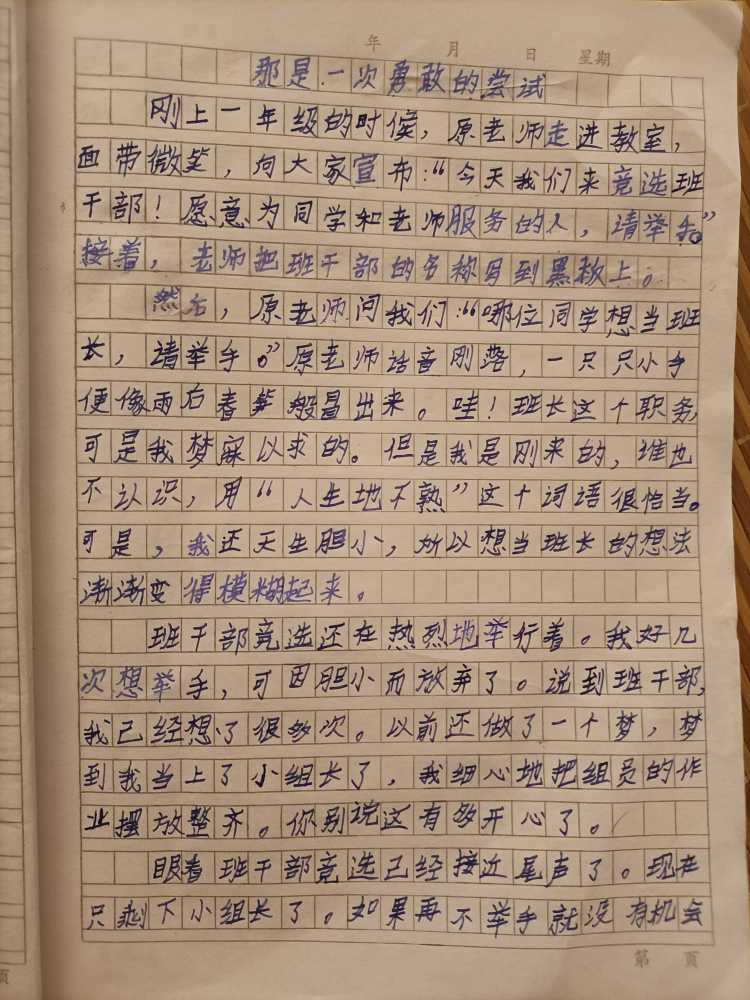 年 月 日 星期
那是一次勇敢的尝试
刚上一年级的时候，原老师走进教室，
面带微笑，向大家宣布：“今天我们来竞选班
干部！愿意为同学和老师服务的人，请举手。”
接着，老师把班干部的名称写到黑板上。
然后，原老师问我们：“哪位同学想当班
长，请举手。”原老师话音刚落，一只只小手
便像雨后春笋般冒出来。哇！班长这个职务，
可是我梦寐以求的。但是我是刚来的，谁也
不认识，用“人生地不熟”这个词语很恰当。
可是，我还天生胆小，所以想当班长的想法
渐渐变得模糊起来。
班干部竞选还在热烈地举行着。我好几
次想举手，可因胆小而放弃了。说到班干部，
我已经想了很多次。以前还做了一个梦，梦
到我当上了小组长了，我细心地把组员的作
业摆放整齐。你别说这有多开心了。
眼看班干部竞选已经接近尾声了。现在
只剩下小组长了。如果再不举手就没有机会
第 页
页